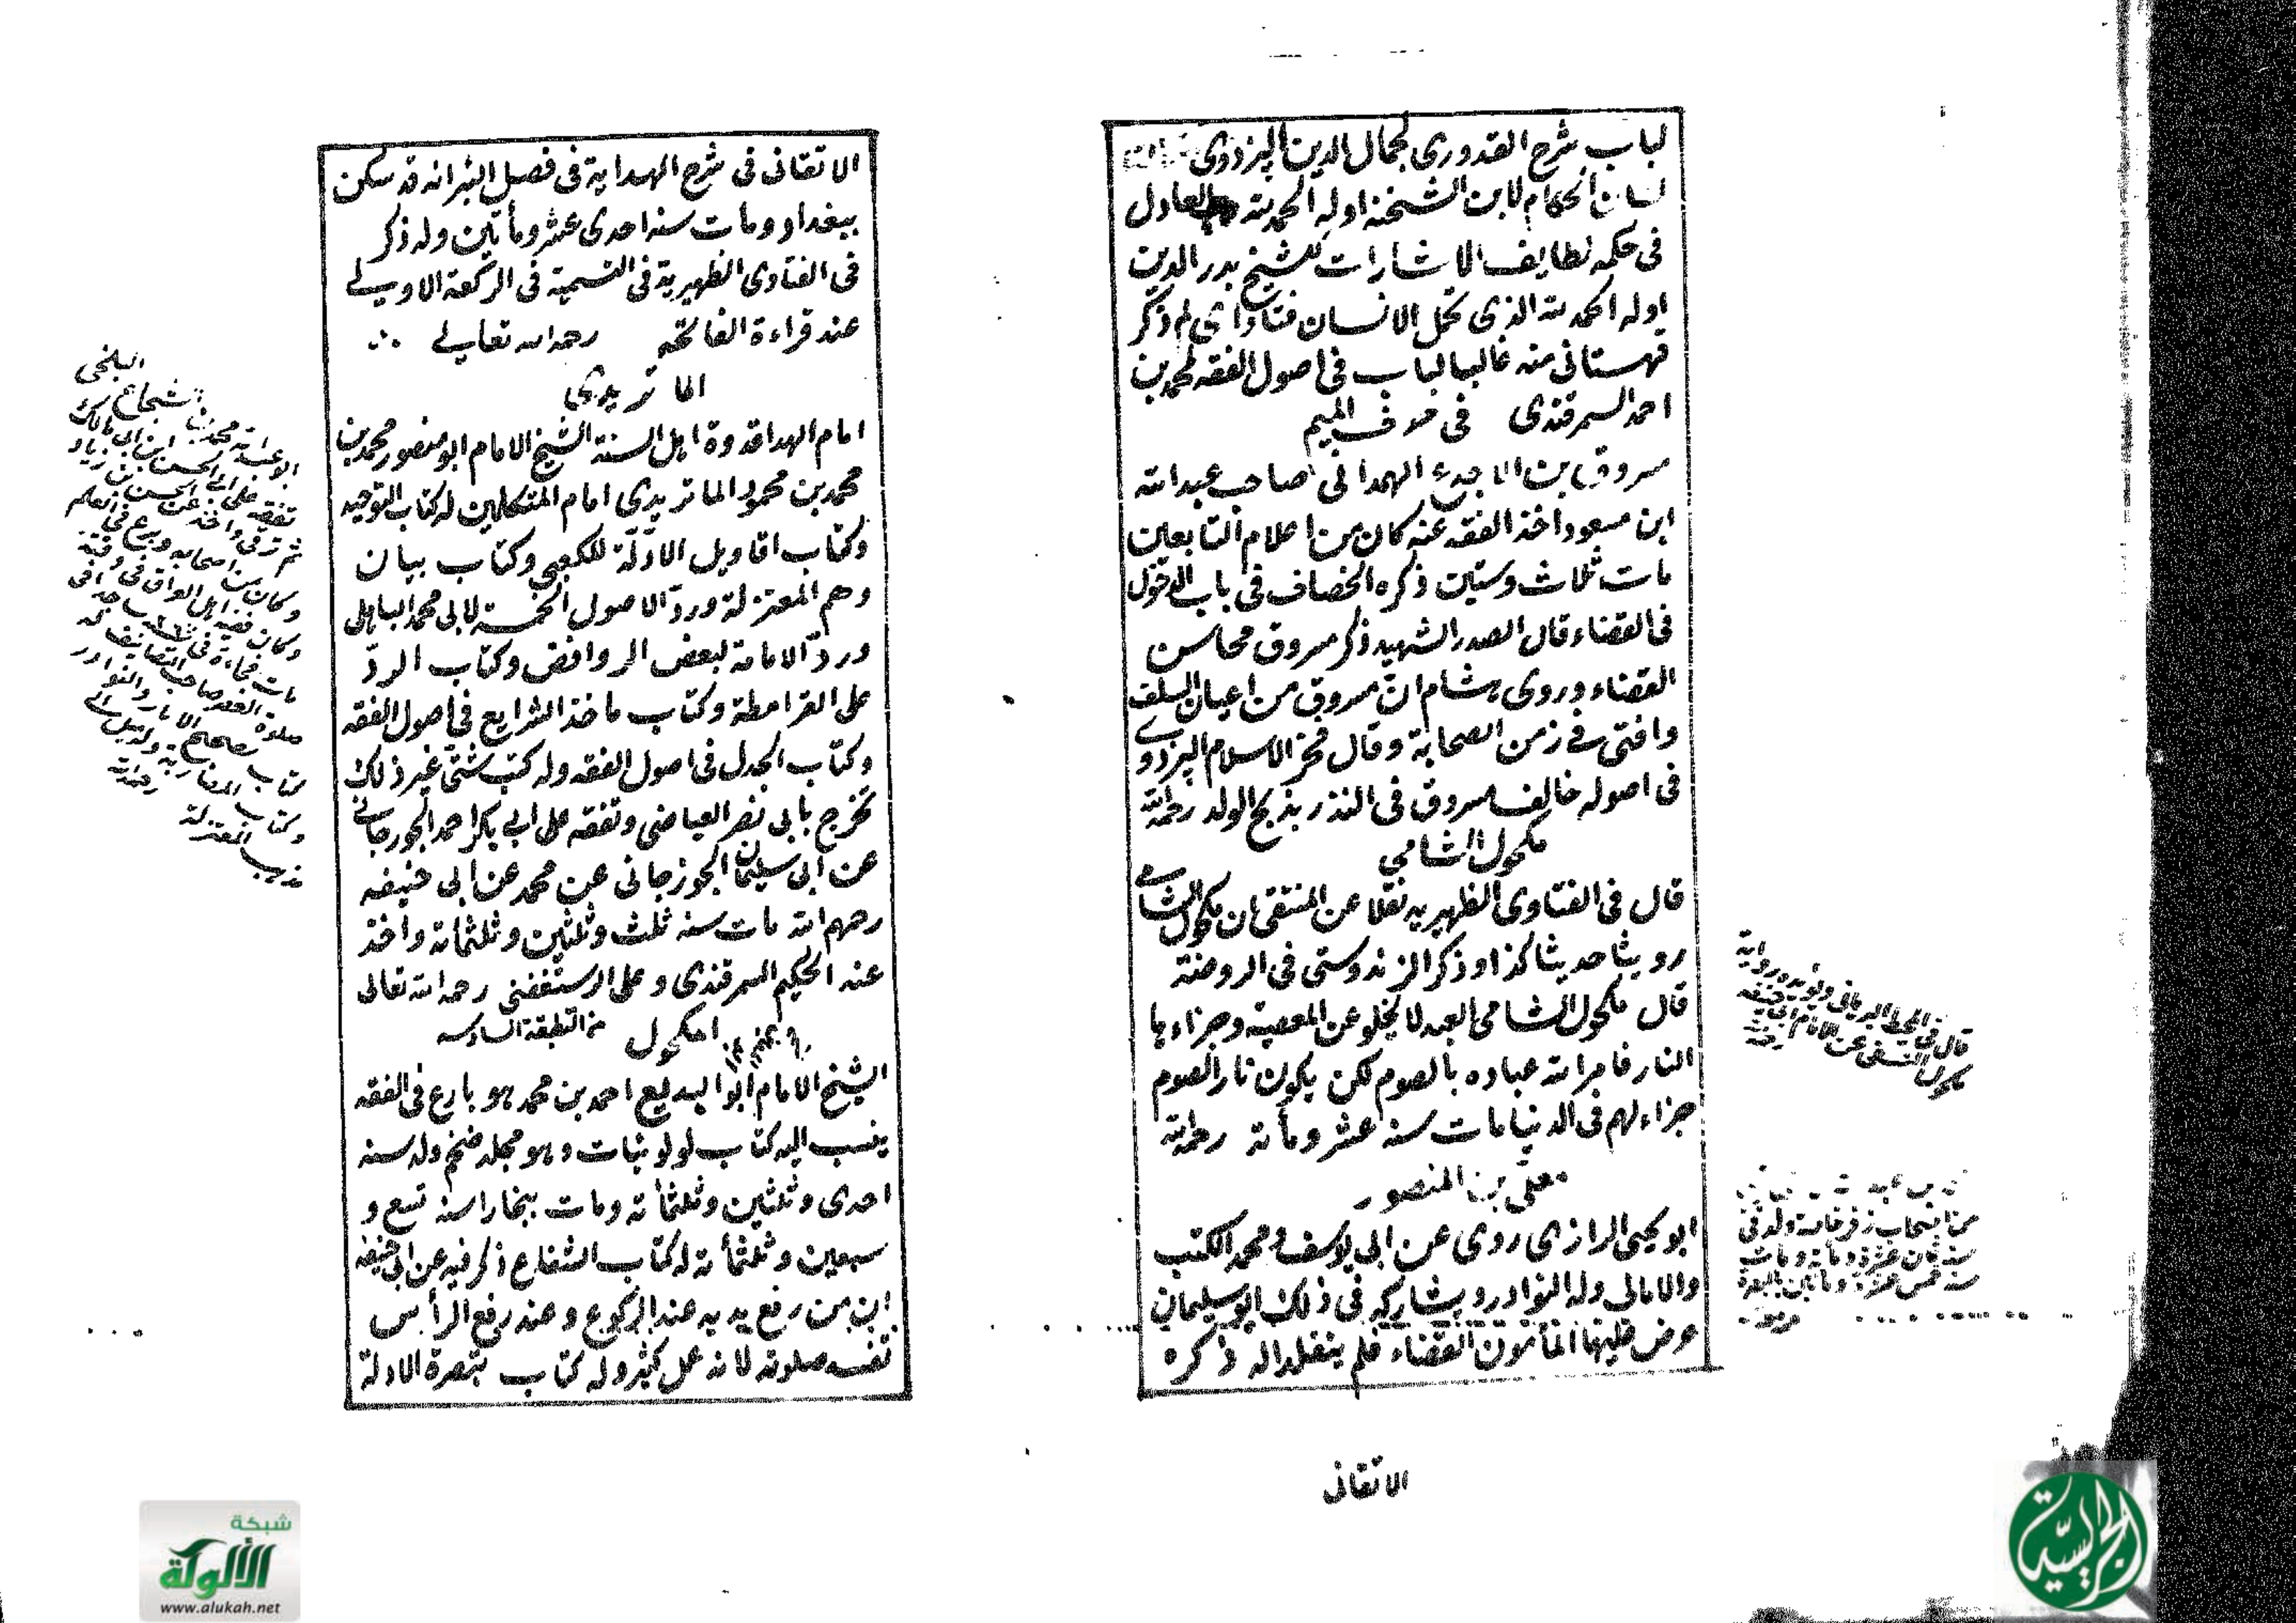 لباب شرح القدوري لجمال الدين اليزدوى
لسان الحكام لابن الشحنة اوله الحمد لله العادل
فى حكمه لطايف الاشارات للشيخ بدر الدين
اوله الحمد لله الذى كمل الانسان فتاواى لم ذكر
قهستانى منه غالبا لباب فى اصول الفقه لمحمد بن
احمد السمرقندى فى حرف الميم
مسروق بن الاجدع الهمدانى صاحب عبد الله
ابن مسعود اخذ الفقه عنه كان من اعلام التابعين
مات ثلاث وستين ذكره الخصاف فى باب الدخول
فى القضاء قال الصدر الشهيد ذكر مسروق محاسن
القضاء وروى هشام انّ مسروق من اعيان السلف
وافتى فى زمن الصحابة وقال فخر الاسلام البزدوى
فى اصوله خالف مسروق فى النذر بذبح الولد رحمه الله
مكحول الشامى
قال فى الفتاوى الظهيريه نقلا عن المنتقى ان مكحول الشامى
روينا حديثا كذا وذكر الزندوستى فى الروضة
قال مكحول الشامى العبد لا يخلو عن المعصية وجزاءها
النار فامر الله عباده بالصوم لكن يكون نار الصوم
جزاء لهم فى الدنيا مات سنة عشر ومأتة رحمه الله
معلى بن المنصور
ابو يحيى الرازى روى عن ابى يوسف ومحمد الكتب
والامالى وله النوادر ويشاركه فى ذلك ابو سليمان
عرض عليهما المأمون القضاء فلم يتقلدا له ذكره
الاتقانى
قال فى المحيط البرهانى ويؤيده رواية
مكحول النسفى عن الامام ابى حنيفه
رحمه
من اصحاب زفر خاصة ولد فى
سنة ثمان عشرة ومأة ومات
سنة خمس عشرة ومأتين بالبصرة
الاتقانى فى شرح الهداية فى فصل البئر انه قد سكن
ببغداد ومات سنة احدى عشر ومأتين وله ذكر
فى الفتاوى الظهيرية فى التسمية فى الركعة الاولى
عند قراءة الفاتحة رحمه الله تعالى
الماتريدى
امام الهدا قدوة اهل السنة الشيخ الامام ابو منصور محمد بن
محمد بن محمود الماتريدى امام المتكلمين له كتاب التوحيد
وكتاب اقاويل الادلّة للكعبى وكتاب بيان
وهم المعتزلة وردّ الاصول الخمسة لابى محمد الباهلى
وردّ الامامة لبعض الروافض وكتاب الردّ
على القرامطة وكتاب ماخذ الشرايع فى اصول الفقه
وكتاب الجدل فى اصول الفقه وله كتب شتّى غير ذلك
تخرج بابى نصر العياضى وتفقه على ابى بكر احمد الجورجانى
عن ابى سليمان الجوزجانى عن محمد عن ابى حنيفه
رحمهم الله مات سنة ثلث وثلثين وثلثمائة واخذ
عنه الحكيم السمرقندى وعلى الرستغفنى رحمه الله تعالى
مكحول من الطبقة السادسه
الشيخ الامام ابو البديع احمد بن محمد هو بارع فى الفقه
ينسب اليه كتاب لولوئيات وهو مجلد ضخم ولد سنة
احدى وثلثين وثلثمأئة ومات ببخارا سنة تسع و
سبعين وثلثمأئة له كتاب الشفاع ذكر فيه عن ابى حنيفه
ان من رفع يديه عند الركوع وعند رفع الرأس
تفسد صلوته لانه عمل كثير وله كتاب تبصرة الادلة
البلخى
ابو عبد الله محمد بن شجاع
تفقه على الحسن ابن ابى مالك
وكان من اصحابه وبرع فى العلم
وكان فقيه اهل العراق فى وقته
مات فجاءة فى ساجدا فى
صلوة العصر صاحب التصانيف له
كتاب تصحيح الاثار والنوادر
وكتاب المضاربة وله ميل الى
مذهب المعتزلة رحمه الله
شبكة
الألوكة
www.alukah.net